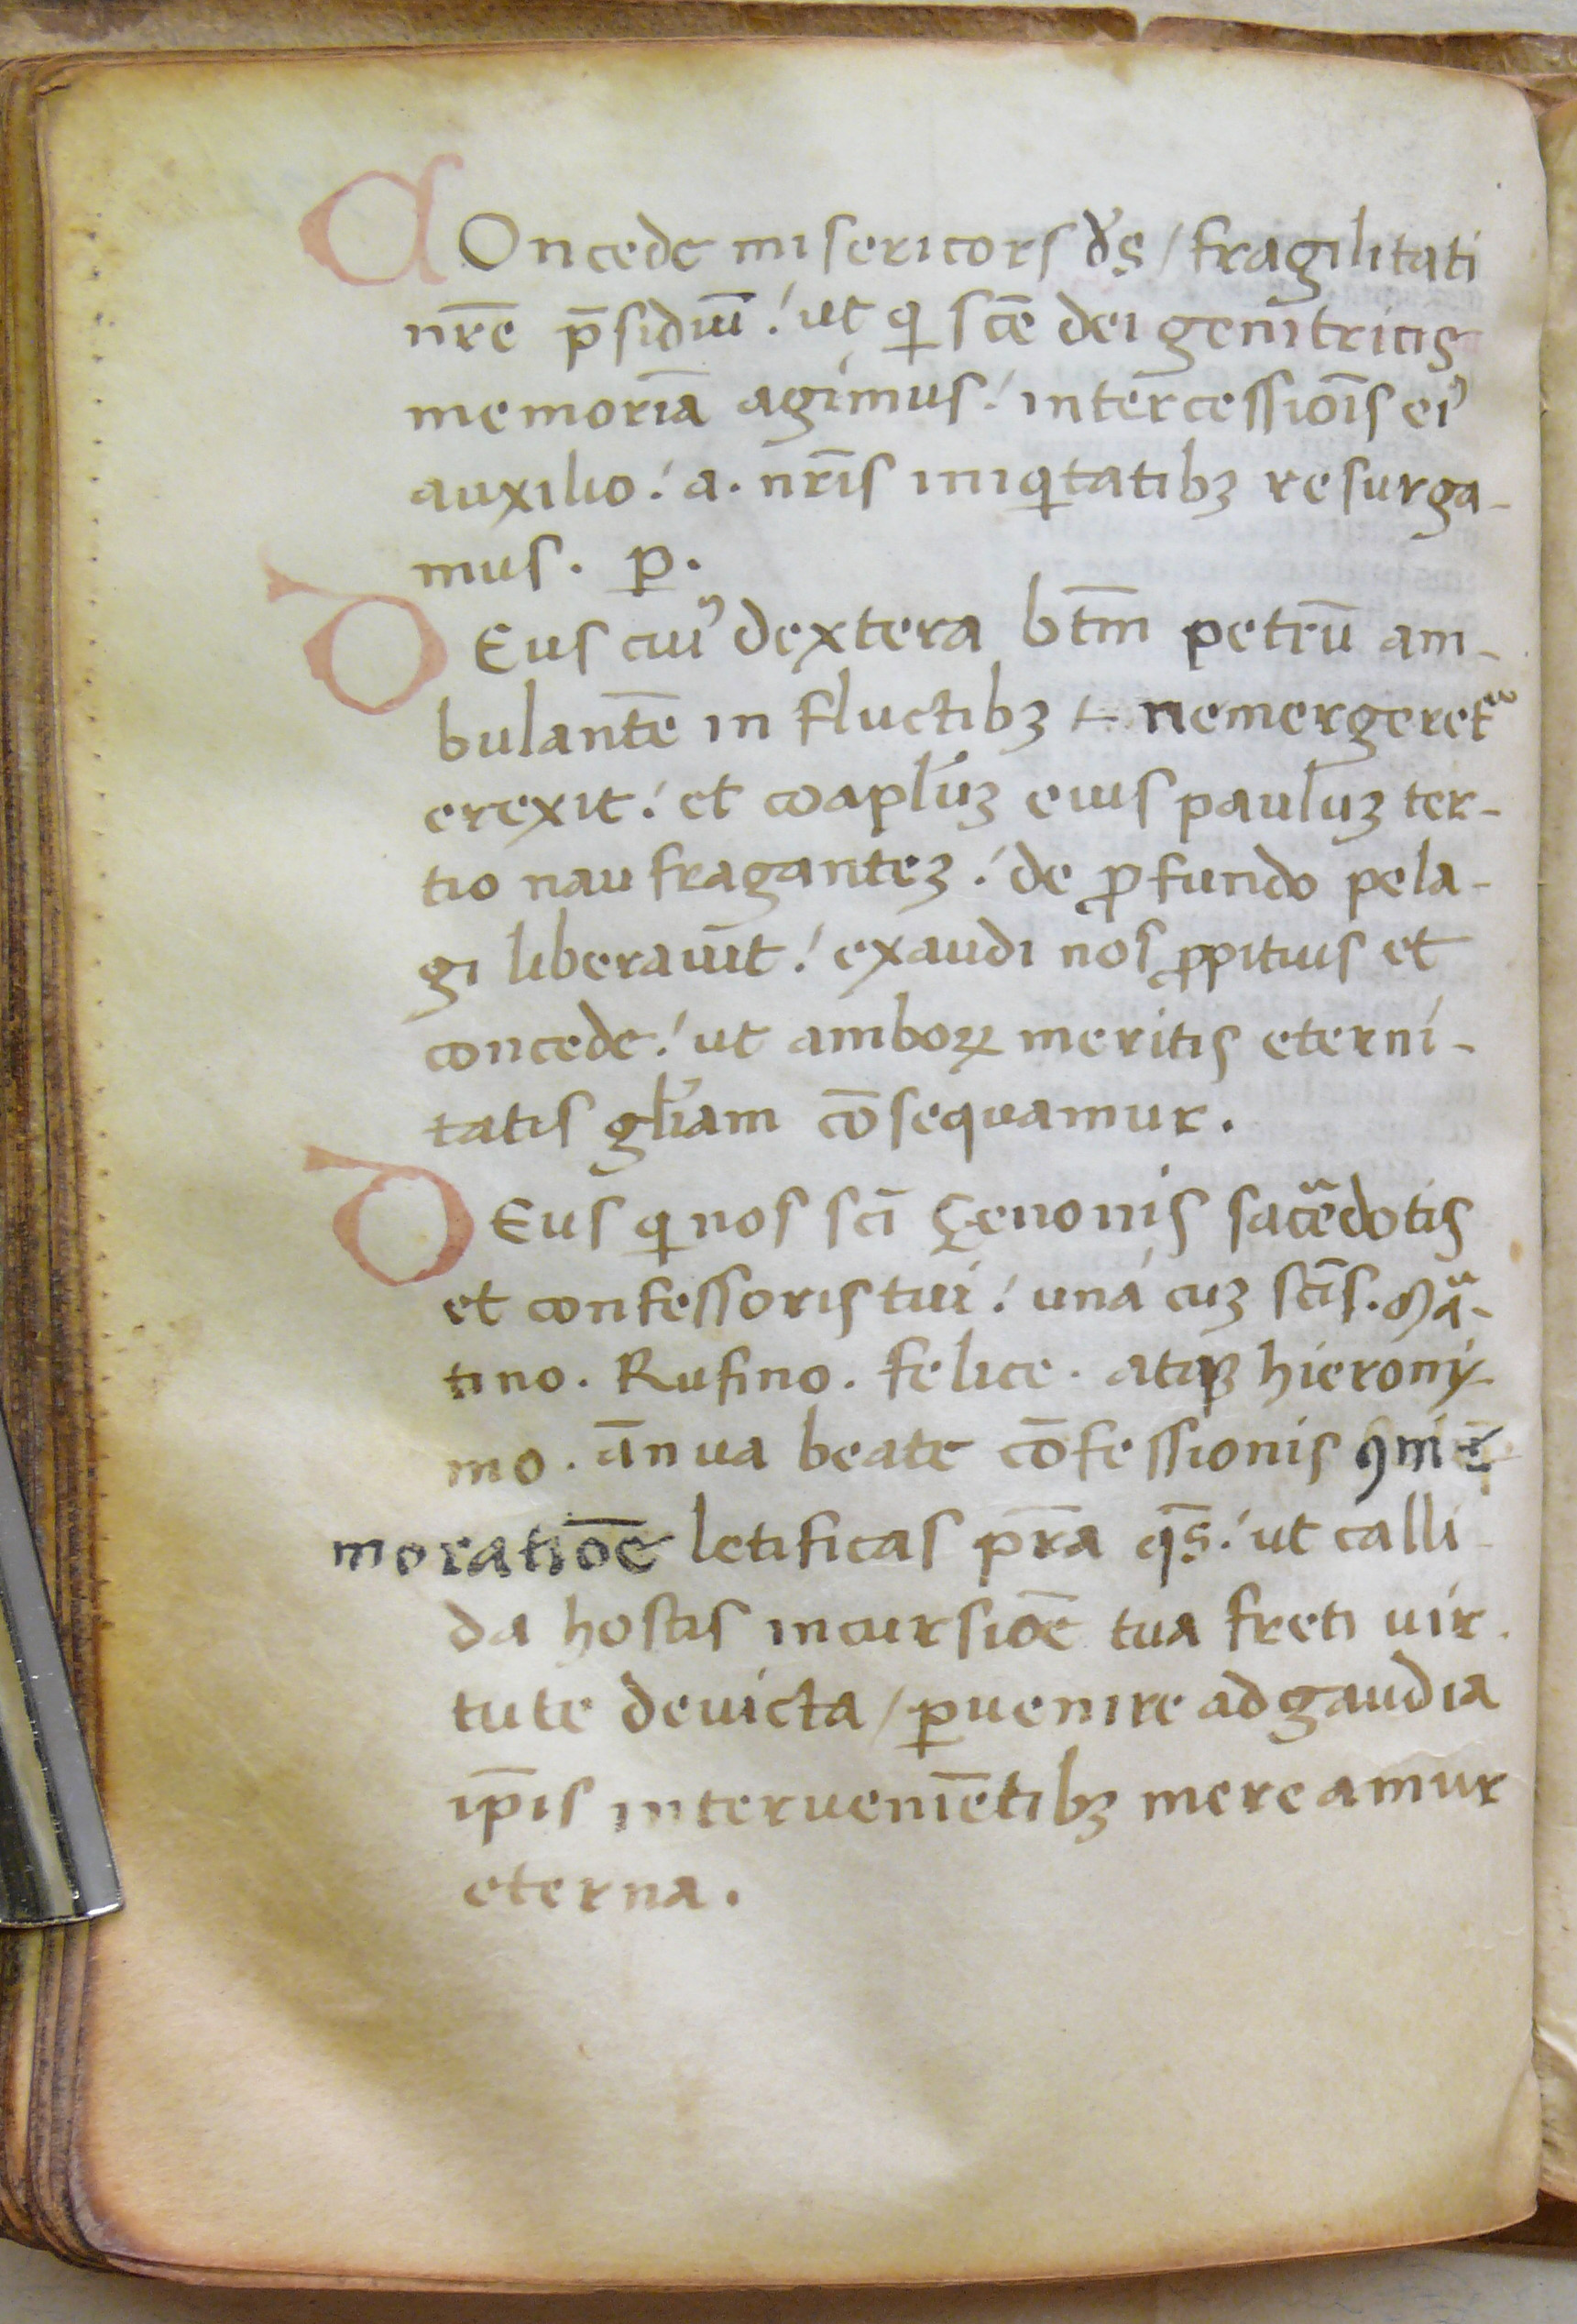 COncede misericors dˢs / fragilitati
nr̄e p̄sidiuȝ̄ ! ut qi sc̄e dei genitricis
memoriā agimus ! intercessiōis ei⁹
auxilio ! a. nr̄is iniqitatibꝫ resurga-
mus. p.
DEus cui⁹ dextera bt̄m petrū am-
bulantē in fluctibꝫ ⁊ nemergeret᷑
erexit ! et coapl̄uꝫ eius pauluꝫ ter-
tio naufraganteꝫ ! de ꝓfundo pela-
gi liberauit ! exaudi nos ꝓpitius et
concede ! ut amboꝝ meritis eterni-
tatis gl̄iam cōsequamur.
DEus qi nos sc̄i Çenonis sacᷓedotis
et confessoris tui ! una cuꝫ sc̄is. Maᷓ-
tino. Rufino. felice. atqꝫ hierony-
mo. ānua beate cōfessionis ꝯmē
moratiōe letificas pr̄a qs̄ ! ut calli-
da hostis incursiōe tua freti uir-
tute deuicta / ꝑuenire ad gaudia
ip̄is interueniētibꝫ mereamur
eterna.